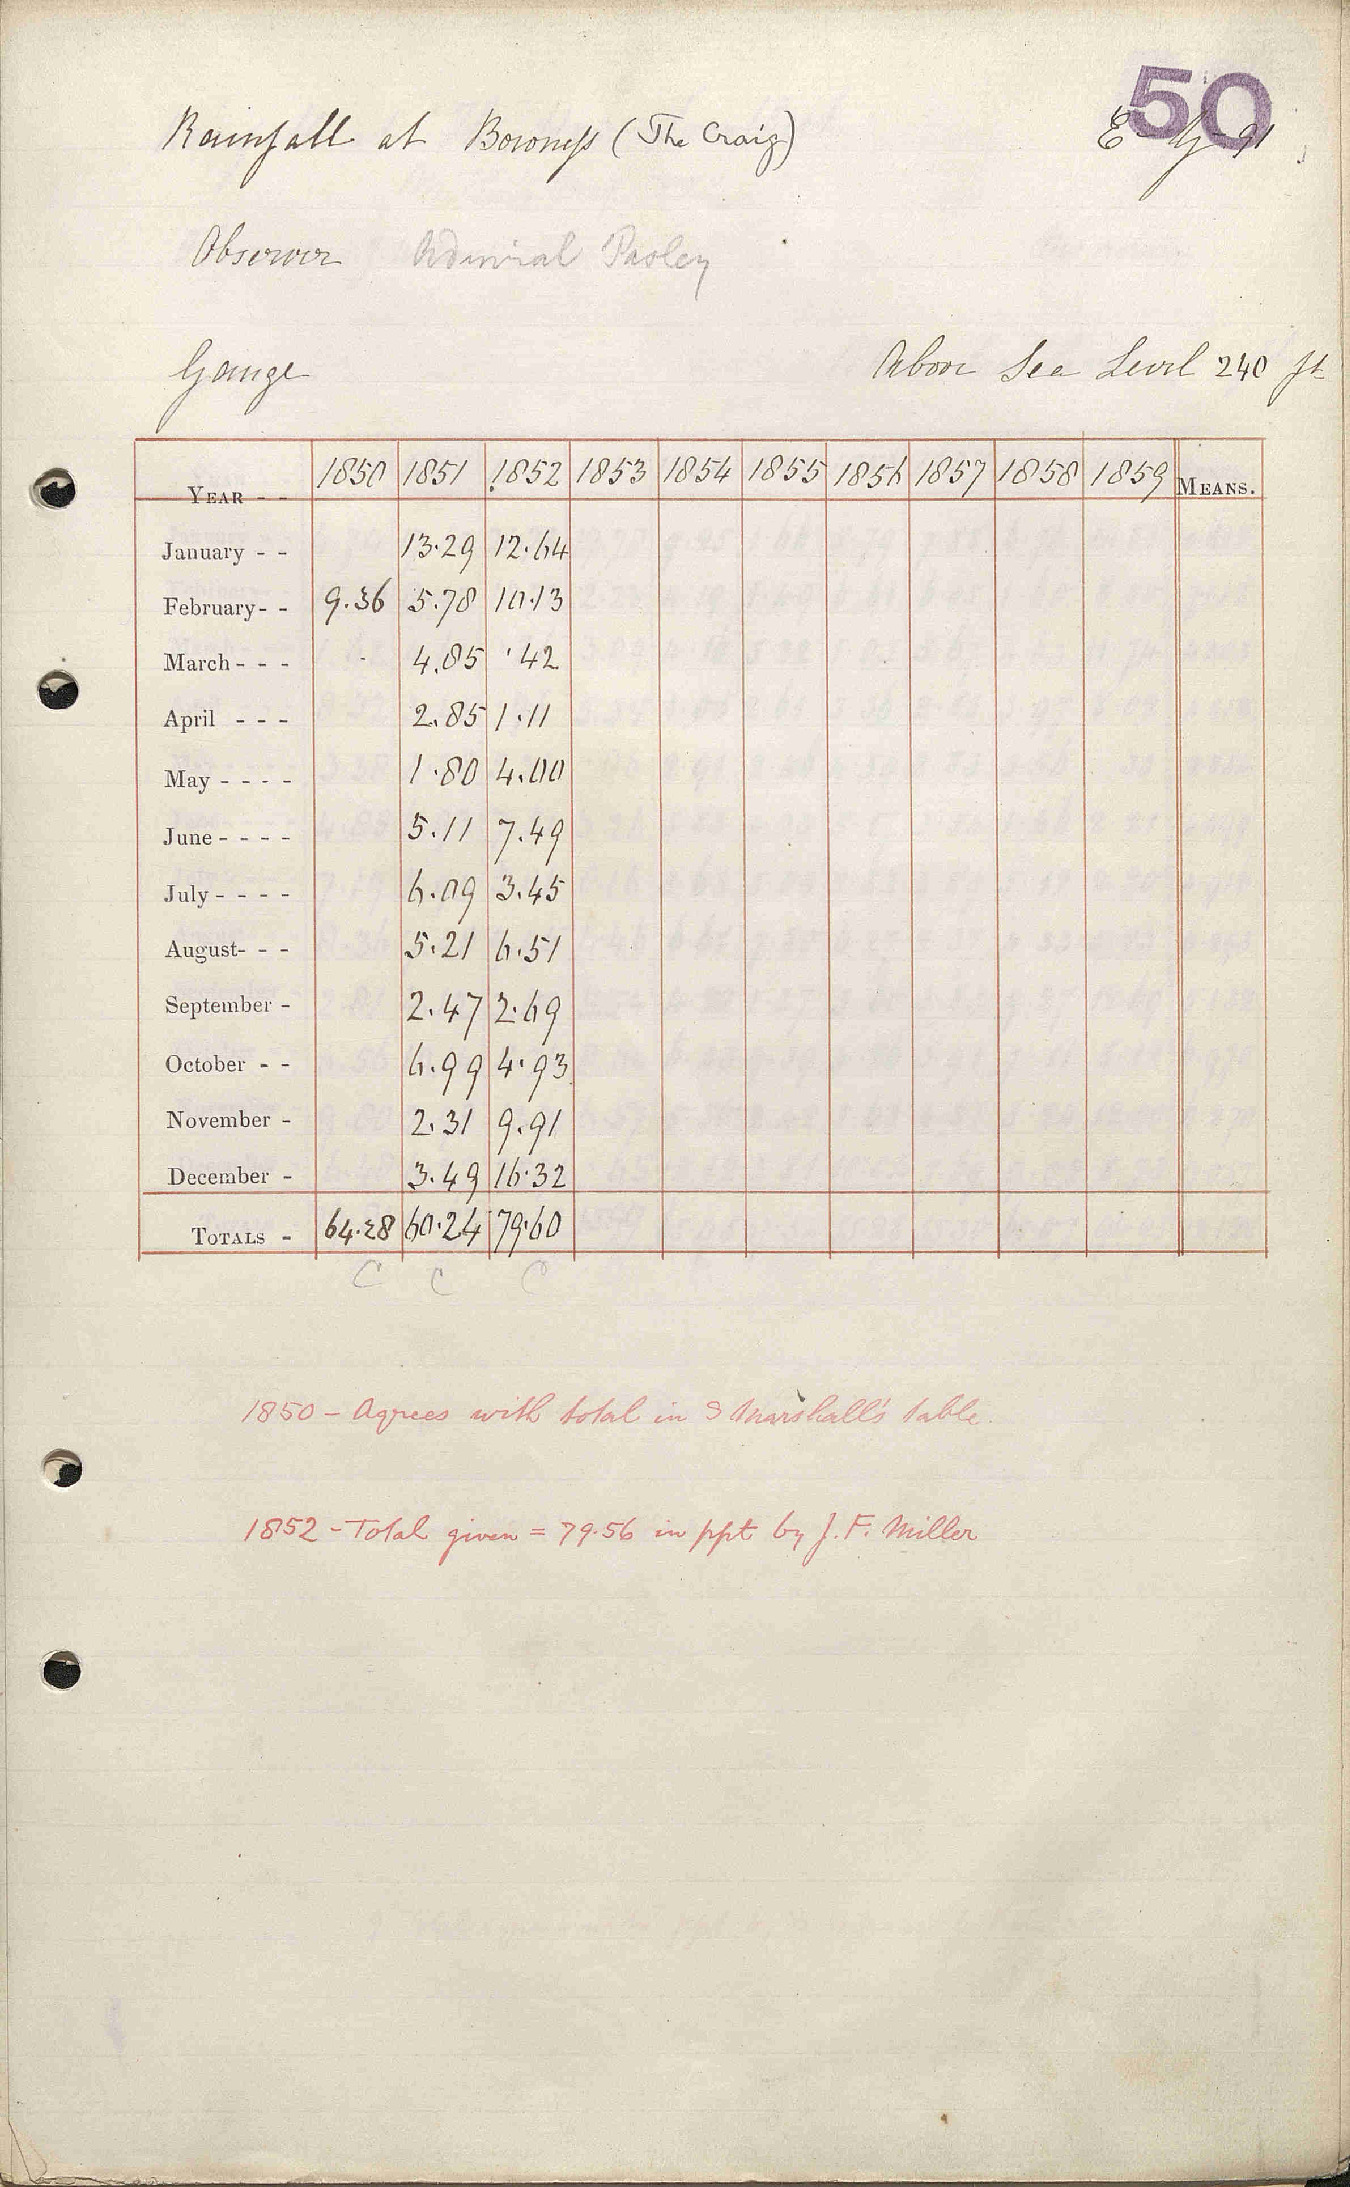 50
Rainfall at Bowness (The Craig)
Observer Admiral Pasley
Gauge Above Sea Level 240 ft
YEAR - - 1850 1851 1852 1853 1854 1855 1856 1857 1858 1859 MEANS.
January - - 13.29 12.64
February - - 9.36 5.78 10.13
March - - - 4.85 .42
April - - - 2.85 1.11
May - - - - 1.80 4.00
June - - - - 5.11 7.49
July - - - - 6.09 3.45
August - - - 5.21 6.51
September - 2.47 2.69
October - - 6.99 4.93
November - 2.31 9.91
December - 3.49 16.32
TOTALS - 64.28 60.24 79.60
C C C
1850 - Agrees with total in S Marshall's table.
1852 - Total given = 79.56 in ppt by J. F. Miller